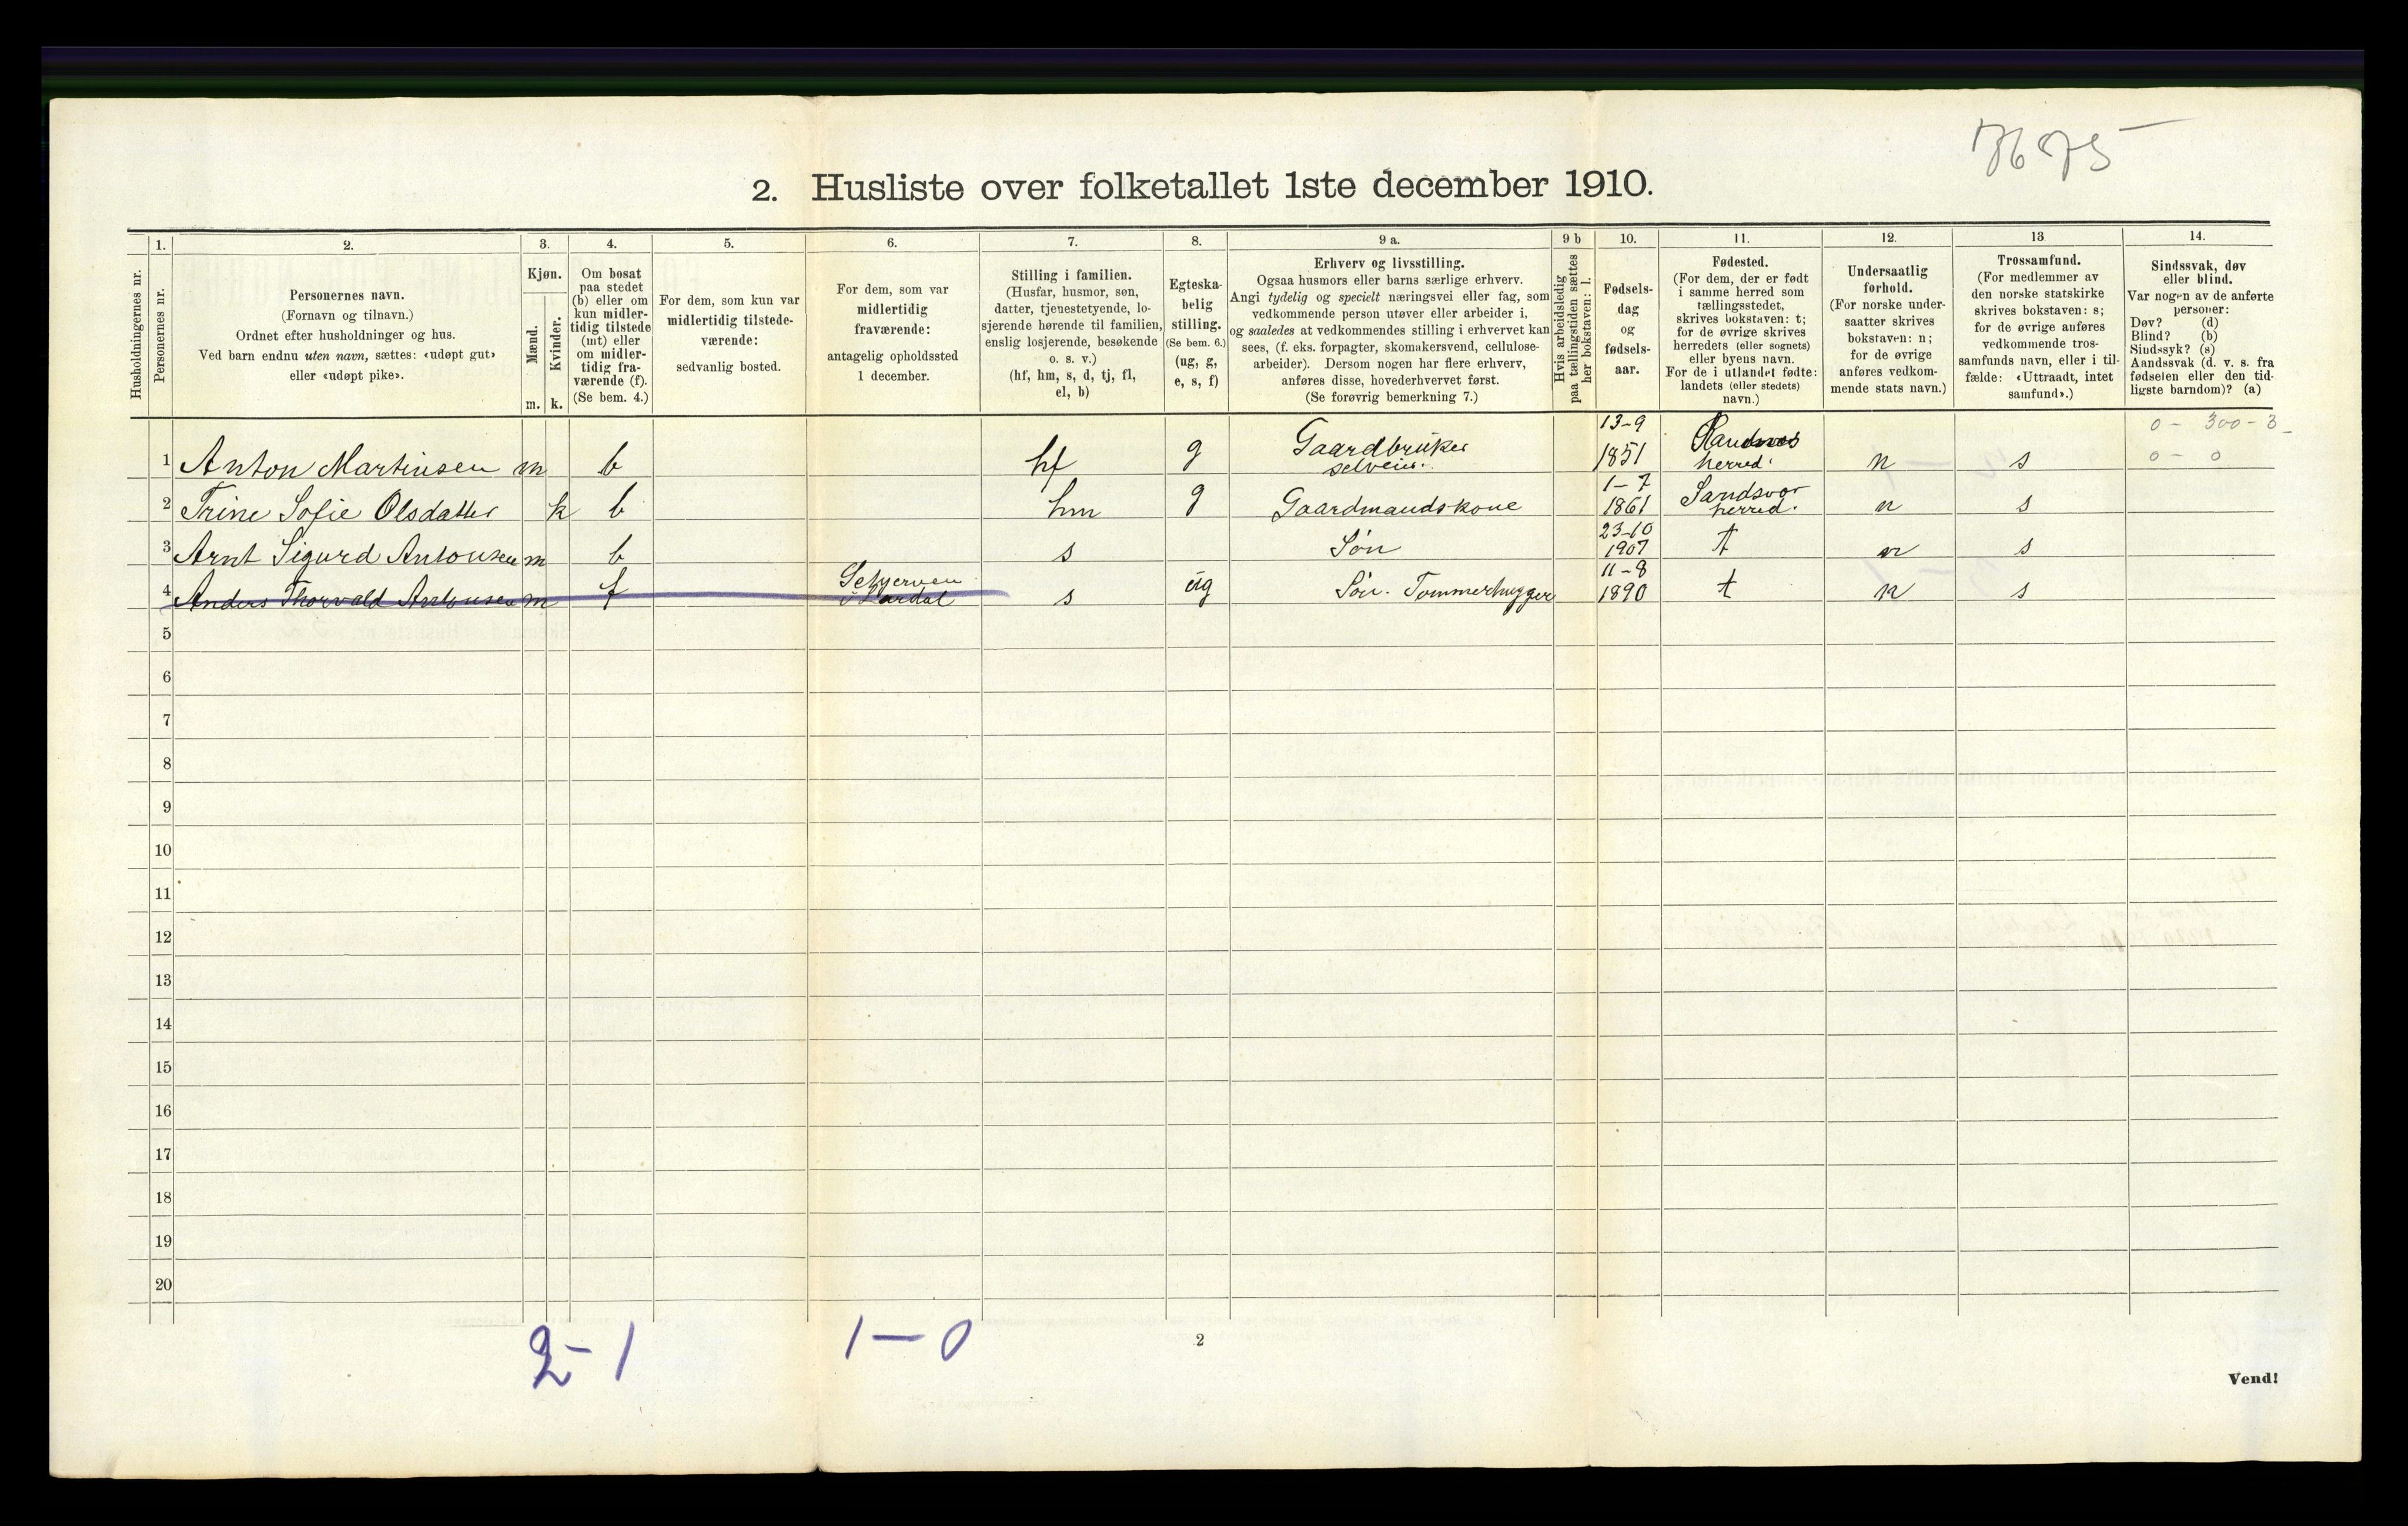 7675
2. Husliste over folketallet 1ste december 1910.
Husholdningernes nr.
1.
Personernes nr.
2.
Personernes navn.
(Fornavn og tilnavn.)
Ordnet efter husholdninger og hus.
Ved barn endnu uten navn, sættes: «udøpt gut»
eller «udøpt pike».
3.
Kjøn.
Mænd.
Kvinder.
m. k.
4.
Om bosat
paa stedet
(b) eller om
kun midler-
tidig tilstede
(mt) eller
om midler-
tidig fra-
værende (f).
(Se bem. 4.)
5.
For dem, som kun var
midlertidig tilstede-
værende:
sedvanlig bosted.
6.
For dem, som var
midlertidig
fraværende:
antagelig opholdssted
1 december.
7.
Stilling i familien.
(Husfar, husmor, søn,
datter, tjenestetyende, lo-
sjerende hørende til familien,
enslig losjerende, besøkende
o. s. v.)
(hf, hm, s, d, tj, fl,
el, b)
8.
Egteska-
belig
stilling.
(Se bem. 6.)
(ug, g,
e, s, f)
9 a.
Erhverv og livsstilling.
Ogsaa husmors eller barns særlige erhverv.
Angi tydelig og specielt næringsvei eller fag, som
vedkommende person utøver eller arbeider i,
og saaledes at vedkommendes stilling i erhvervet kan
sees, (f. eks. forpagter, skomakersvend, cellulose-
arbeider). Dersom nogen har flere erhverv,
anføres disse, hovederhvervet først.
(Se forøvrig bemerkning 7.)
9 b
Hvis arbeidsledig
paa tællingstiden sættes
her bokstaven: l.
10.
Fødsels-
dag
og
fødsels-
aar.
11.
Fødested.
(For dem, der er født
i samme herred som
tællingsstedet,
skrives bokstaven: t;
for de øvrige skrives
herredets (eller sognets)
eller byens navn.
For de i utlandet fødte:
landets (eller stedets)
navn.)
12.
Undersaatlig
forhold.
(For norske under-
saatter skrives
bokstaven: n;
for de øvrige
anføres vedkom-
mende stats navn.)
13
Trossamfund.
(For medlemmer av
den norske statskirke
skrives bokstaven: s;
for de øvrige anføres
vedkommende tros-
samfunds navn, eller i til-
fælde: «Uttraadt, intet
samfund».)
14.
Sindssvak, døv
eller blind.
Var nogen av de anførte
personer:
Døv? (d)
Blind? (b)
Sindssyk? (s)
Aandssvak (d. v. s. fra
fødselen eller den tid-
ligste barndom)? (a)
1 Anton Martinsen m b hf g Gaardbruker selveier. 13-9 1851 herred. n s 0 - 300 - 3
0 - 0
2 Trine Sofie Olsdatter k b hm g Gaardmandskone 1-7 1861 Sandsvær herred. n s
3 Arnt Sigurd Antonsen m b s Søn 23-10 1907 t n s
4 Anders Thorvald Antonsen m f i Lardal s ug Søn. Tømmerhugger 11-8 1890 t n s
5
6
7
8
9
10
11
12
13
14
15
16
17
18
19
20
2-1
1-0
2
Vend!